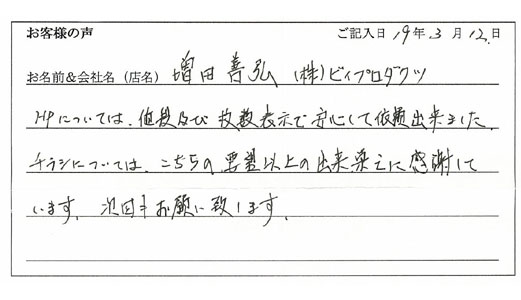 お客様の声 ご記入日 19年3月12日
お名前&会社名(店名) 増田善弘 (株)ビイプロダクツ
HPについては、値段及び枚数表示で安心して依頼出来ました。
チラシについては、こちらの要望以上の出来栄えに感謝して
います。次回もお願い致します。